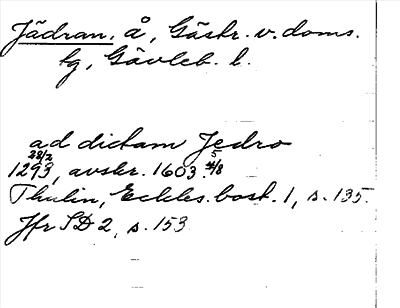 Jädran, å, Gästr. v. doms.
tg, Gävleb. l.
ad dictam Jedro
28/2 5
1293, avskr. 1603 4/8
Thulin, Eckles. bost. 1, s. 135.
Jfr SD 2, s. 153